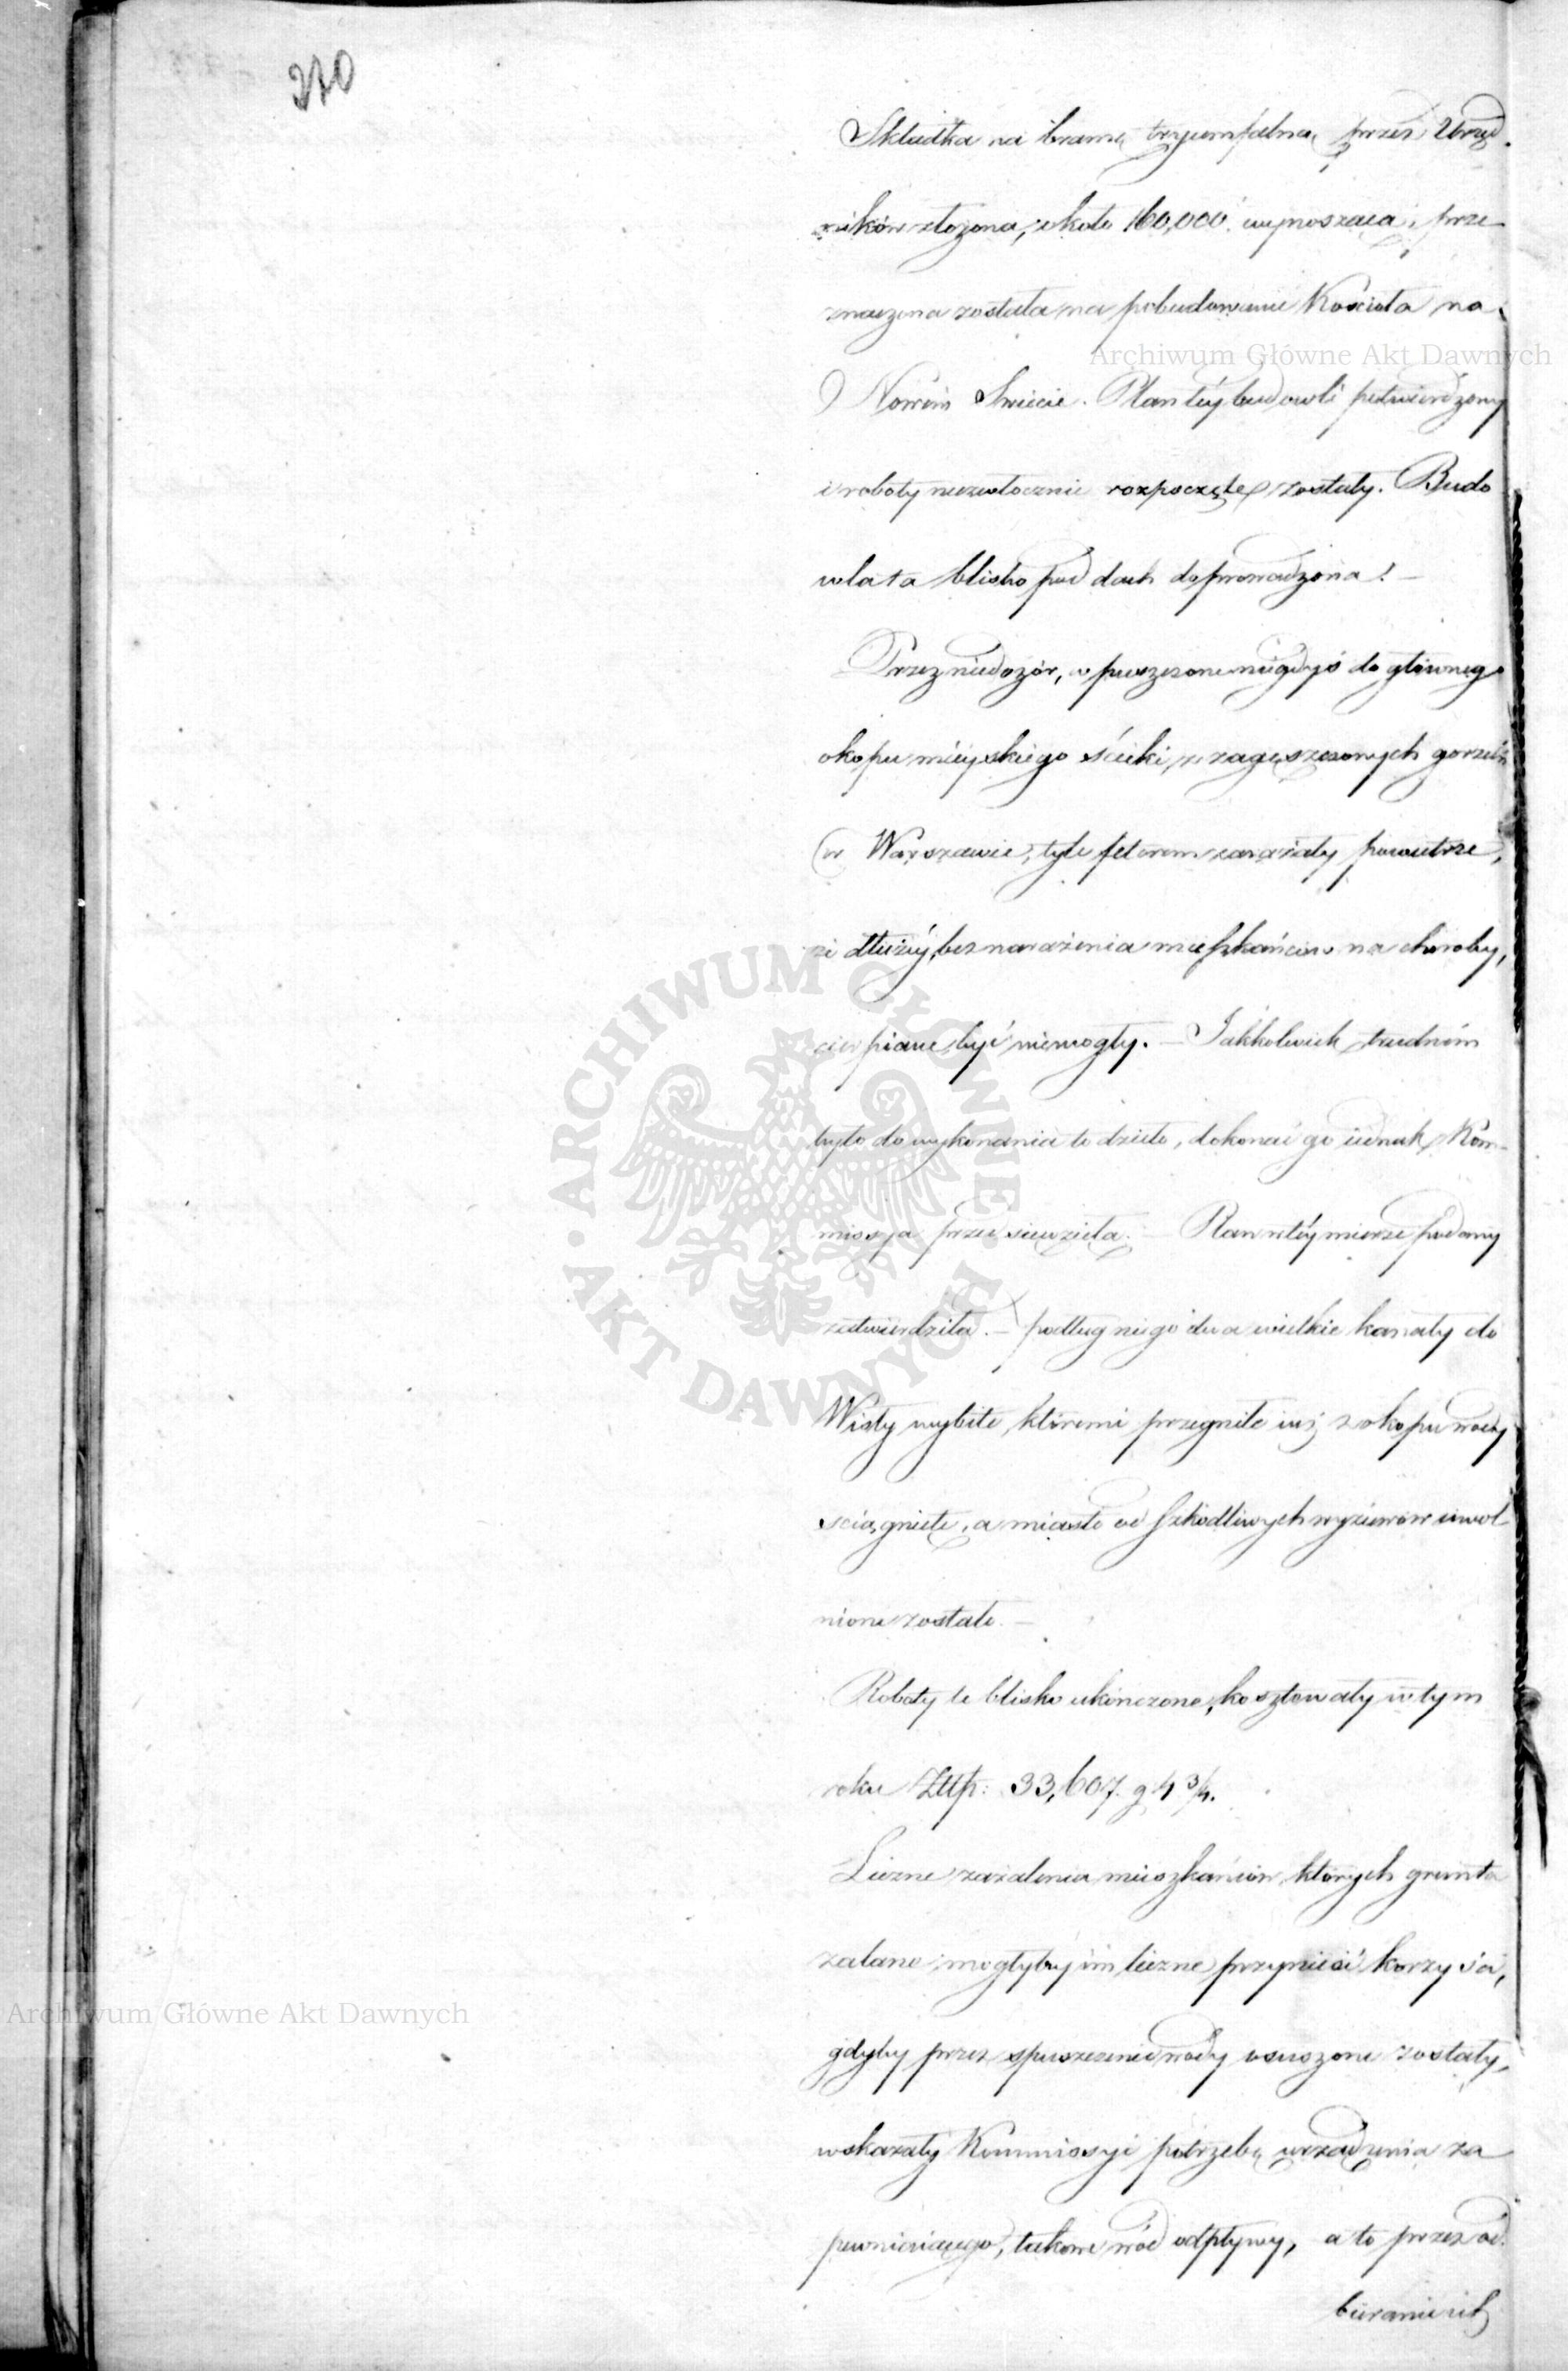 270
Składka na bramę tryumfalną przez Urzęd-
ników złożona, około 160,000. wynosząca, prze-
znaczona została na pobudowanie Kościoła na
Nowém Swiecie. Plan téy budowli potwierdzony
i roboty niezwłocznie rozpoczęte zostały. Budo
wla ta blisko pod dach doprowadzona! —
Przez niedozór, wpuszczone niegdyś do głównego
okopu mieyskiego ścieki, z zagęszczonych gorzelń
w Warszawie, tyle fetorem zarażały powietrze,
że dłużéy, bez narażenia mieszkańców na choroby,
cierpiane być niemogły. — Jakkolwiek trudném
było do wykonania to dzieło, dokonać go iednak Kom-
missya przedsięwzięła. — Plan w téy mierze podany
zatwierdziła. — podług niego dwa wielkie kanały do
Wisły wybite, któremi przegniłe iuż z okopu wody
ściągnięte, a miasto od szkodliwych wyziewów uwol
nione zostało. —
Roboty te blisko ukończone, kosztowały w tym
roku Złłp: 33,607. g 4 3/4.
Liczne zażalenia mieszkańców, których grunta
zalane mogłyby im liczne przynieść korzyści,
gdyby przez spuszczenie wody osuszone zostały,
wskazały Kommissyi potrzebę urządzenia za
pewniaiącego, takowe wód odpływy, a to przez od-
bieranie ich
Archiwum Główne Akt Dawnych
ARCHIWUM GŁÓWNE • AKT DAWNYCH •
Archiwum Główne Akt Dawnych